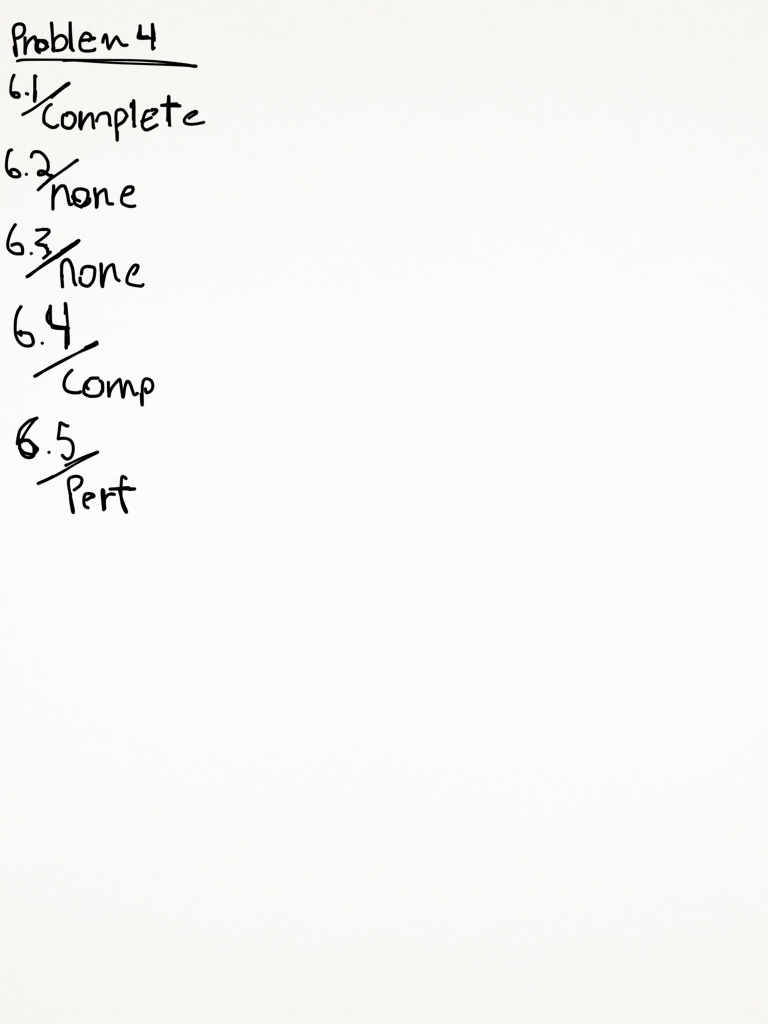 Problem 4
6.1/
Complete
6.2/
none
6.3/
none
6.4
/
Comp
6.5
/
Perf